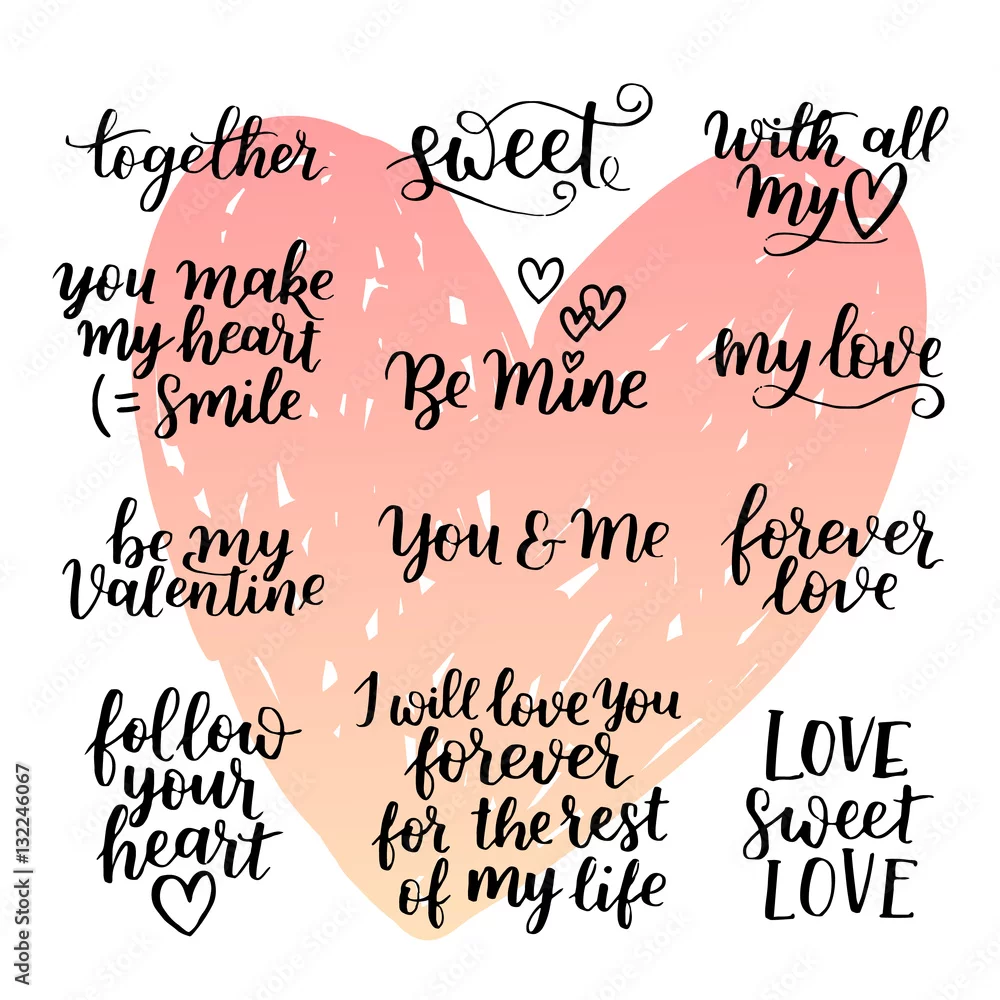 together
sweet
with all
my
you make
my heart
(= smile
Be Mine
my love
be my
Valentine
You & Me
forever
love
follow
your
heart
I will love you
forever
for the rest
of my life
LOVE
sweet
LOVE
Adobe Stock | #132246067
Adobe Stock